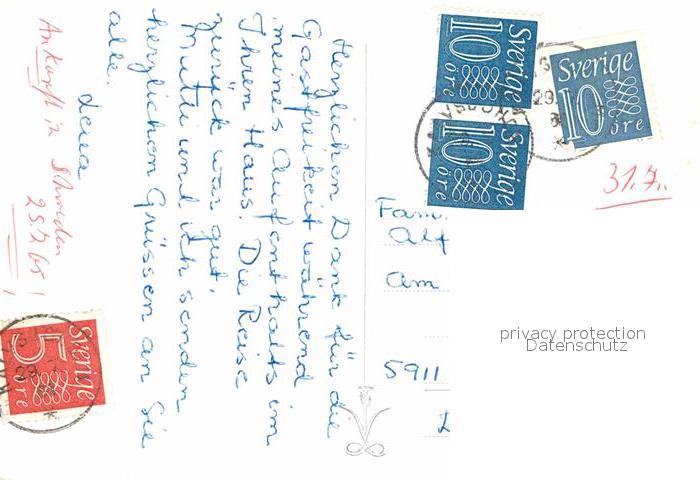 Herzlichen Dank für die
Gastfreikeit während
meines Aufenthalts im
Ihren Haus. Die Reise
zurück war gut.
Mutu und ich senden
herzlichen Grüssen an Sie
alle.
Lena
Ankunft in Schweden
29.7.65!
Sverige
10
öre
Sverige
10
öre
Sverige
10
öre
31.7.
Fam.
Alf
Am
5911
privacy protection
Datenschutz
Sverige
5
öre